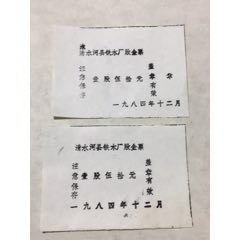 清水河县铁木厂股金票
注意保存
壹股伍拾元
盖章有效
一九八四年十二月
清水河县铁木厂股金票
注意保存
壹股伍拾元
盖章有效
一九八四年十二月